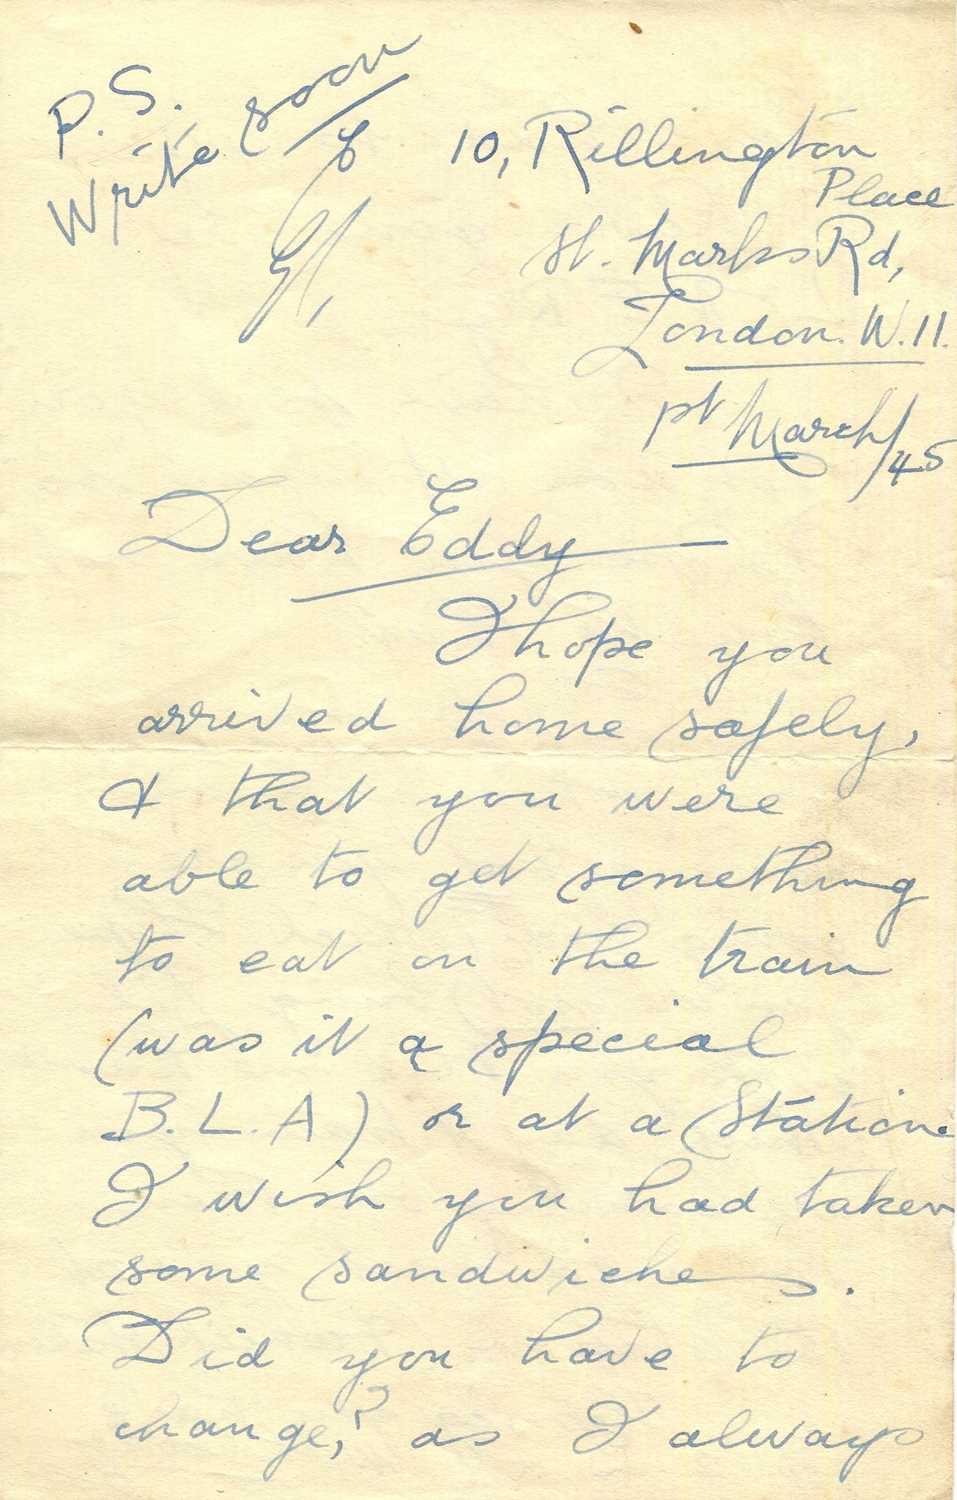 P.S.
Write soon
10, Rillington
Place
St. Marks Rd,
London. W.11.
1st March/45
Dear Eddy
I hope you
arrived home safely,
& that you were
able to get something
to eat on the train
(was it a special
B.L.A) or at a Station
I wish you had taken
some sandwiches.
Did you have to
change,? as I always